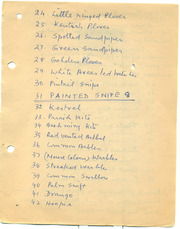 24 Little Ringed Plover
25 Kentish Plover
26 Spotted Sandpiper
27 Green Sandpiper
28 Golden Plover
29 White Breasted
30 Pintail Snipe
31 PAINTED SNIPE
32 Kestrel
33 Pariah Kite
34 Brahminy Kite
35 Red vented Bulbul
36 Common Babbler
37
38 Streaked Warbler
39 Common Swallow
40 Palm Swift
41 Drongo
42 Hoopoe